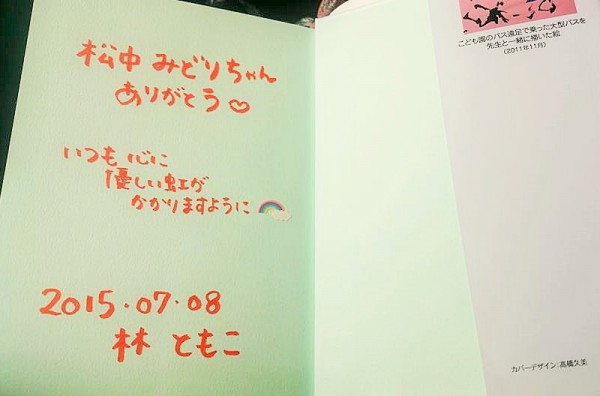 松中 みどりちゃん
ありがとう♡
いつも心に
優しい虹が
かかりますように
2015.07.08
林 ともこ
こども園のバス遠足で乗った大型バスを
先生と一緒に描いた絵
(2011年11月)
カバーデザイン:高橋久美